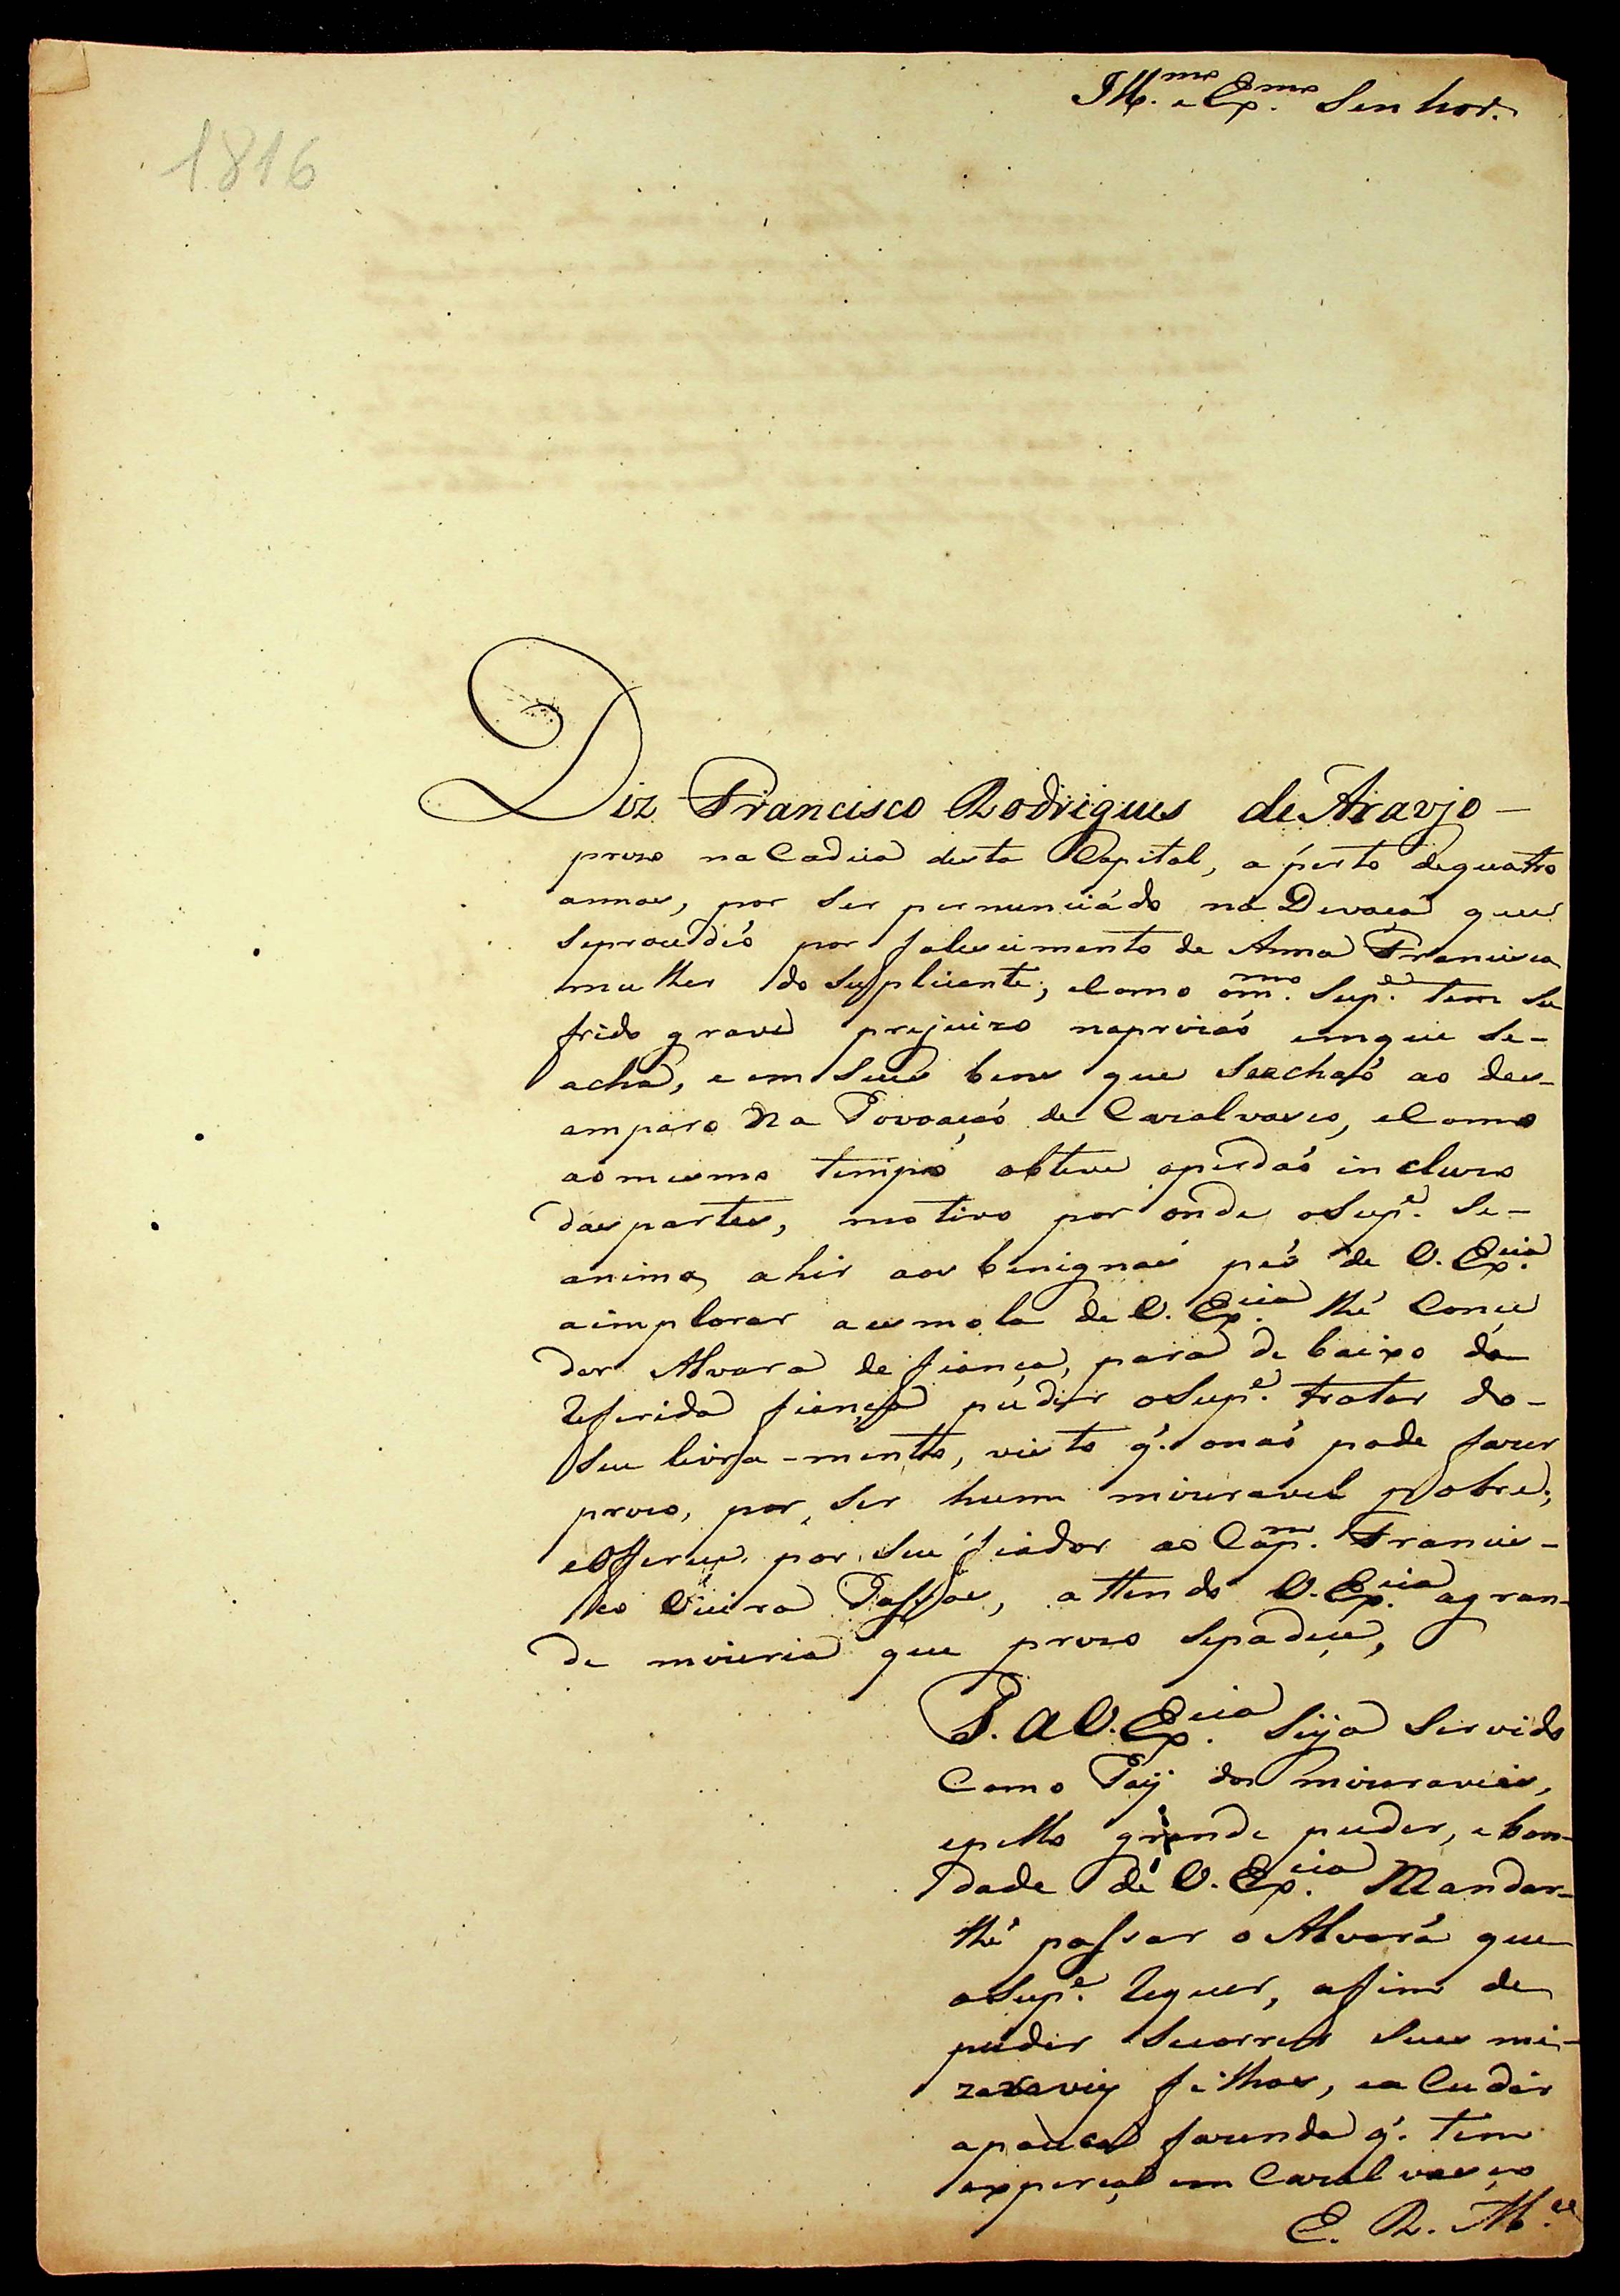 Ill.mo e Ex.mo Senhor.
1816
Diz Francisco Rodrigues de Araujo –
prezo na Cadeia desta Capital, a perto de quatro
annos, por ser pernunciádo na Devaça que
se proçedeó por falescimento de Anna Francisca
mulher do Supplicente; e Como o m.mo Sup.e tem su
frido grave prejuizo na prizaó em que se-
acha, e em Seus bens que se achaó ao des-
amparo Na Povoaçaó de Cazalvasco, e Como
ao mesmo tempo obteve o perdaó incluzo
das partes, motivo por onde o Sup.e Se-
anima, a hir aos benignos pés de V. Ex.cia
a implorar a esmola de V. Ex.cia lhé Conçe
der Alvara de fiança, para de baixo da
referida fiança puder o Sup.e tratar do-
Seu livra-mento, visto q. o naó pode fazer
prezo, por ser hum mizeravel pobre;
e Offereçe por seu fiador ao Cap.m Francis-
co Vieira Passos, attendo V. Ex.cia a gran-
de mizeria que prezo se padeçe,
P. A V. Ex.cia Seja Servido
Como Paÿ dos mizeraveis,
e pello grande puder, e bon-
dade de V. Ex.cia Mandar-
lhé passar o Alvará que
o Sup.e requer, a fim de
puder Secorrer Seus mi-
zaraveiz filhos, e a Cudir
a pouca fazenda q. tem
em Cazalvasco
E. R. M.ce